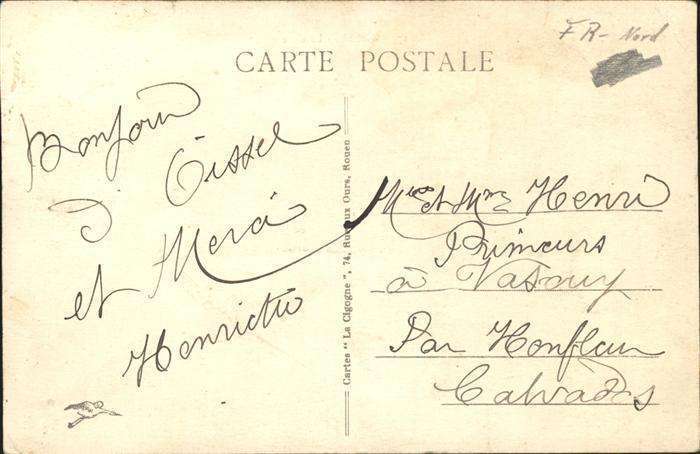 FR - Nord
CARTE POSTALE
Bonjour
d'Oissel
et Merci
Henriette
Cartes " La Cigogne ", 74, Rue aux Ours, Rouen
et Mme Henri
Primeurs
à Vasouy
Par Honfleur
Calvados